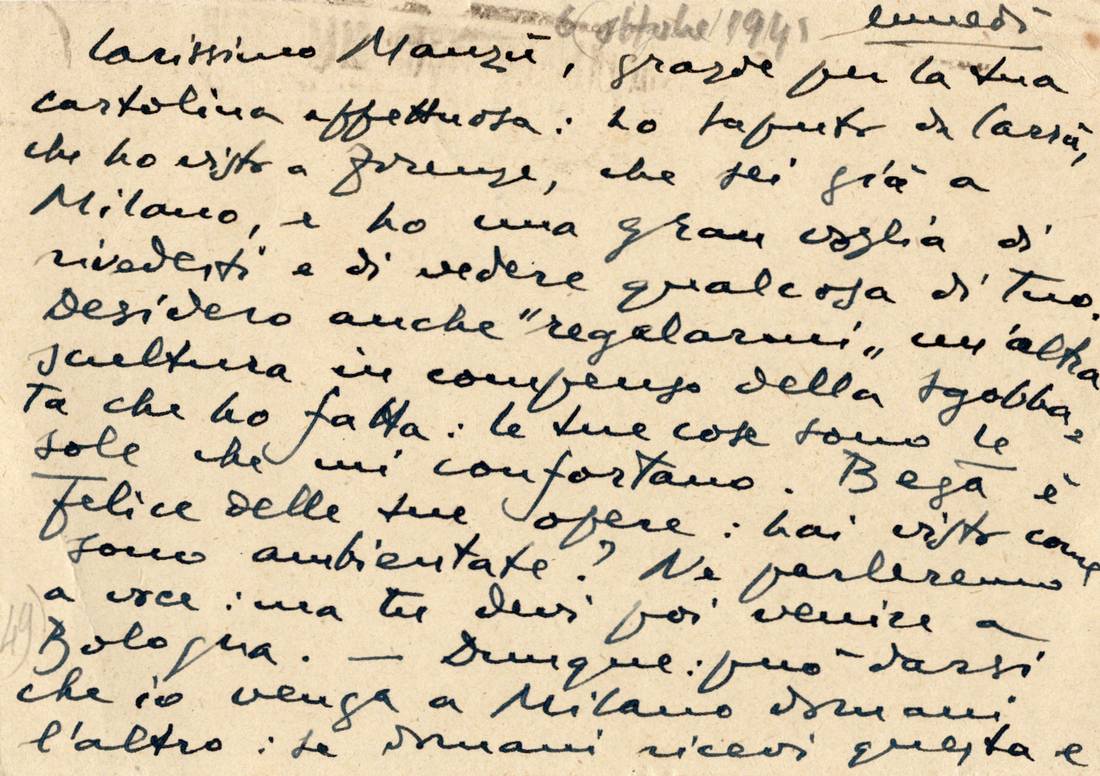 6 ottobre 1941
lunedì
Carissimo Manzù, grazie per la tua
cartolina affettuosa: ho saputo da Carrà,
che ho visto a Firenze, che sei già a
Milano, e ho una gran voglia di
rivederti e di vedere qualcosa di tuo.
Desidero anche "regalarmi" un'altra
scultura in compenso della sgobba=
ta che ho fatta: le tue cose sono le
sole che mi confortano. Bega è
felice delle tue opere: hai visto come
sono ambientate? Ne parleremo
a voce: ma tu devi poi venire a
Bologna. — Dunque: può darsi
che io venga a Milano domani
l'altro: se domani ricevi questa e
49)